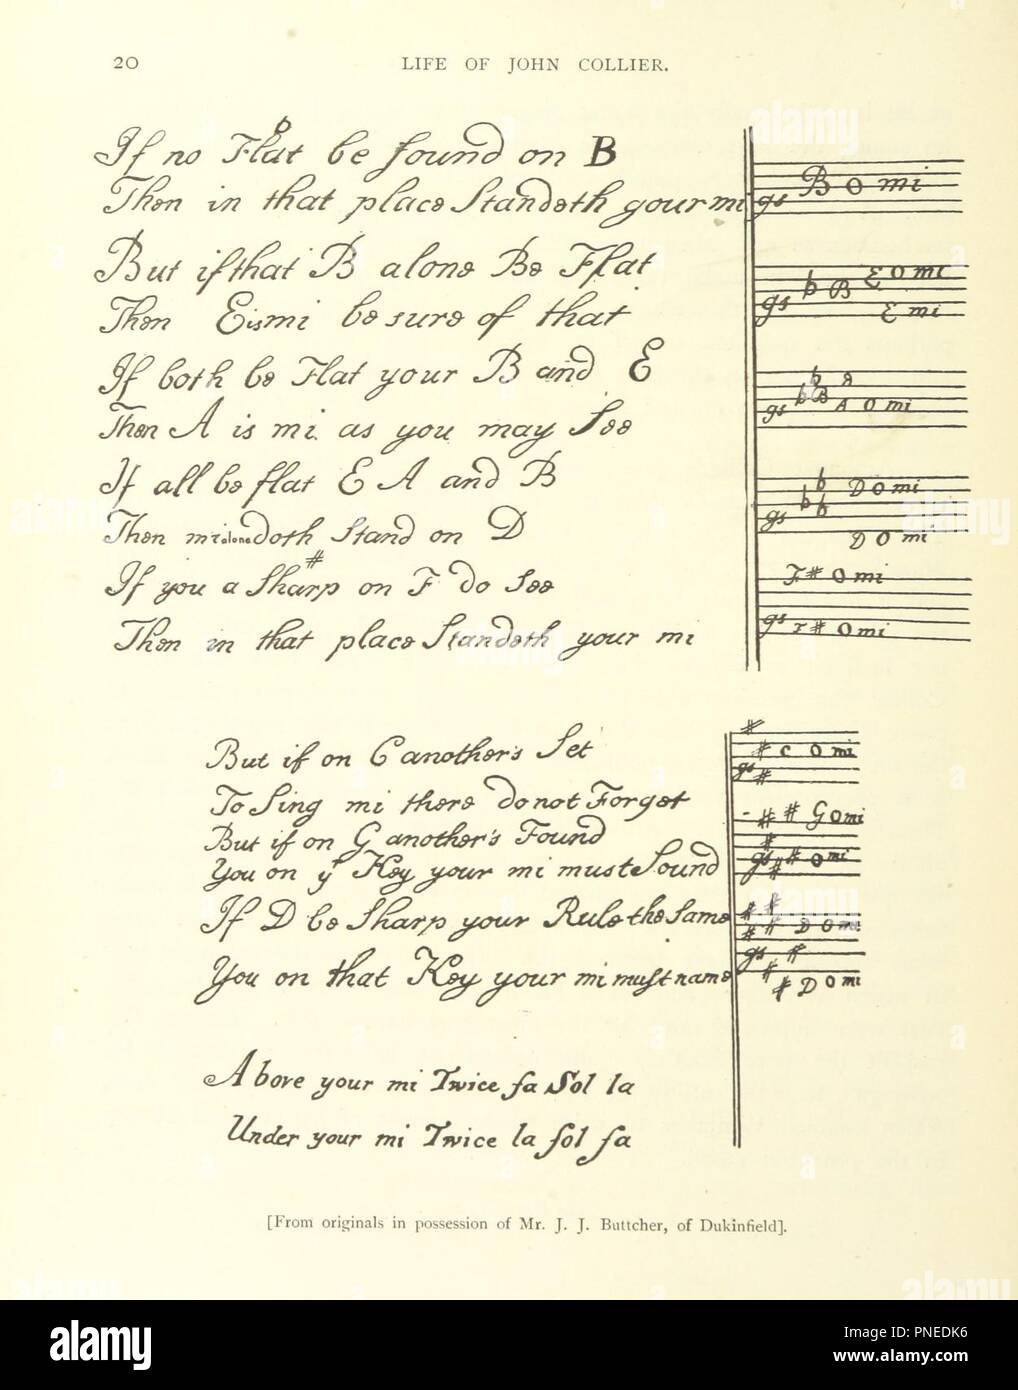 20
LIFE OF JOHN COLLIER.
If no Flat be found on B
Then in that place Standeth your mi
gs B o mi
But if that B alone Be Flat
Then E is mi be sure of that
gs b B E O mi
E mi
If both be Flat your B and E
Then A is mi as you may See
gs b b B A O mi
If all be flat E A and B
Then mi alone doth Stand on D
gs b b b D O mi
D O mi
If you a Sharp # on F do see
Then in that place Standeth your mi
F# O mi
gs F# O mi
But if on C another's Set
To Sing mi there do not Forget
# # C O mi
gs #
But if on G another's Found
You on ye Key your mi must Sound
# # G O mi
#
gs # # O mi
If D be Sharp your Rule the Same
You on that Key your mi must name
# # # # D O mi
gs # #
# D O mi
Above your mi Twice fa Sol la
Under your mi Twice la sol fa
[From originals in possession of Mr. J. J. Buttcher, of Dukinfield].
alamy
Image ID: PNEDK6
www.alamy.com